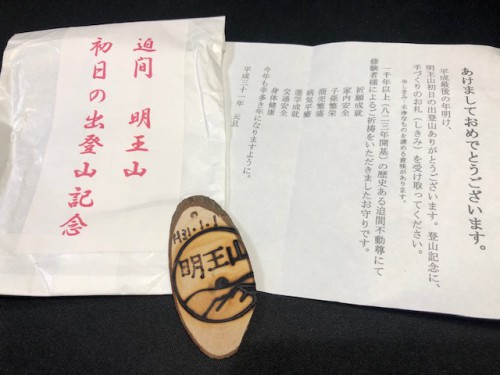 迫間　明王山
初日の出登山記念
H31.1.1
明王山
あけましておめでとうございます。
平成最後の年明け、
明王山初日の出登山ありがとうございます。登山記念に、
手づくりのお札（しきみ）を受け取ってください。
一千年以上（八二三年開基）の歴史ある迫間不動尊にて
修験者様によるご祈祷をいただきましたお守りです。
祈願成就
家内安全
子孫繁栄
商売繁盛
病気平癒
進学成就
交通安全
身体健康
今年も幸多き年になりますように。
平成三十一年　元旦